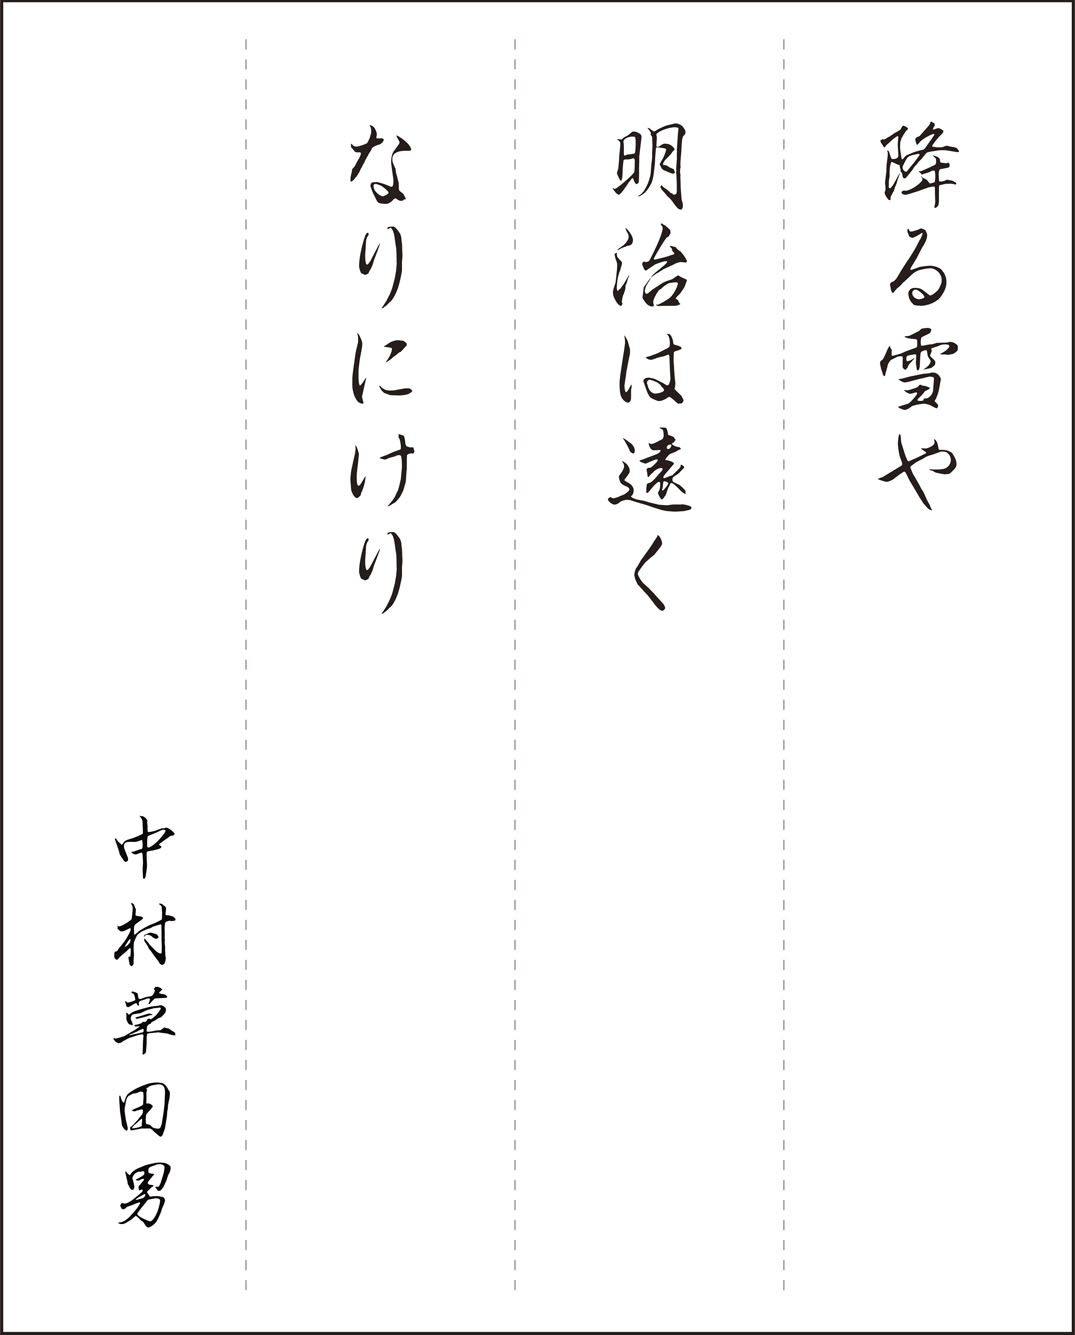 降る雪や
明治は遠く
なりにけり
中村草田男